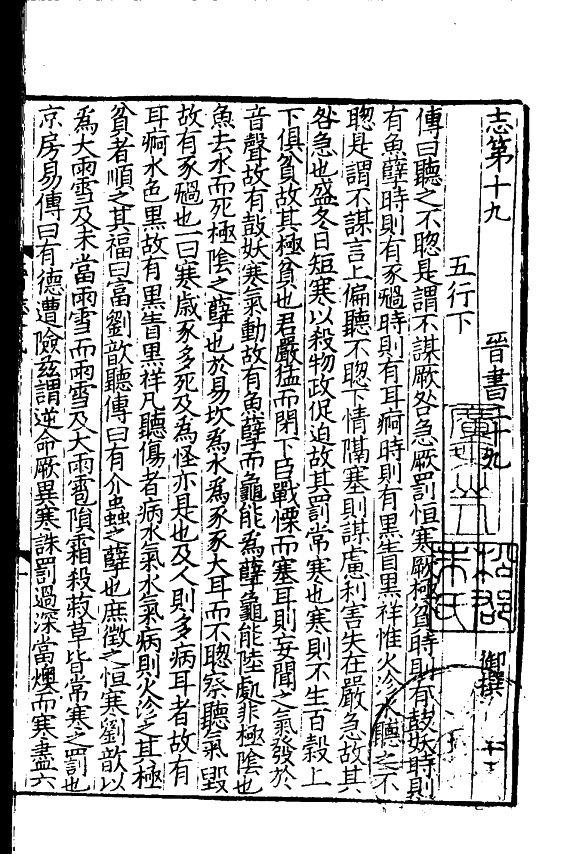 志第十九 晉書二十九 御撰
五行下
傳曰聽之不聦是謂不謀厥咎急厥罰恒寒厥極貧時則有鼓妖時則
有魚孽時則有豕禍時則有耳痾時則有黒眚黒祥惟火沴水聽之不
聦是謂不謀言上偏聽不聦下情隔塞則謀慮利害失在嚴急故其
咎急也盛冬日短寒以殺物政促迫故其罰常寒也寒則不生百糓上
下俱貧故其極貧也君嚴猛而閉下臣戰慄而塞耳則妄聞之氣發於
音聲故有鼓妖寒氣動故有魚孽而龜能為孽龜能陸處非極陰也
魚去水而死極陰之孽也於易坎為水為豕豕大耳而不聦察聽氣毀
故有豕禍也一曰寒歲豕多死及為怪亦是也及人則多病耳者故有
耳痾水色黒故有黒眚黒祥凡聽傷者病水氣水氣病則火沴之其極
貧者順之其福曰富劉歆聽傳曰有介蟲之孽也庶徵之恒寒劉歆以
為大雨雪及未當雨雪而雨雪及大雨雹隕霜殺菽草皆常寒之罰也
京房易傳曰有德遭險兹謂逆命厥異寒誅罰過深當燠而寒盡六